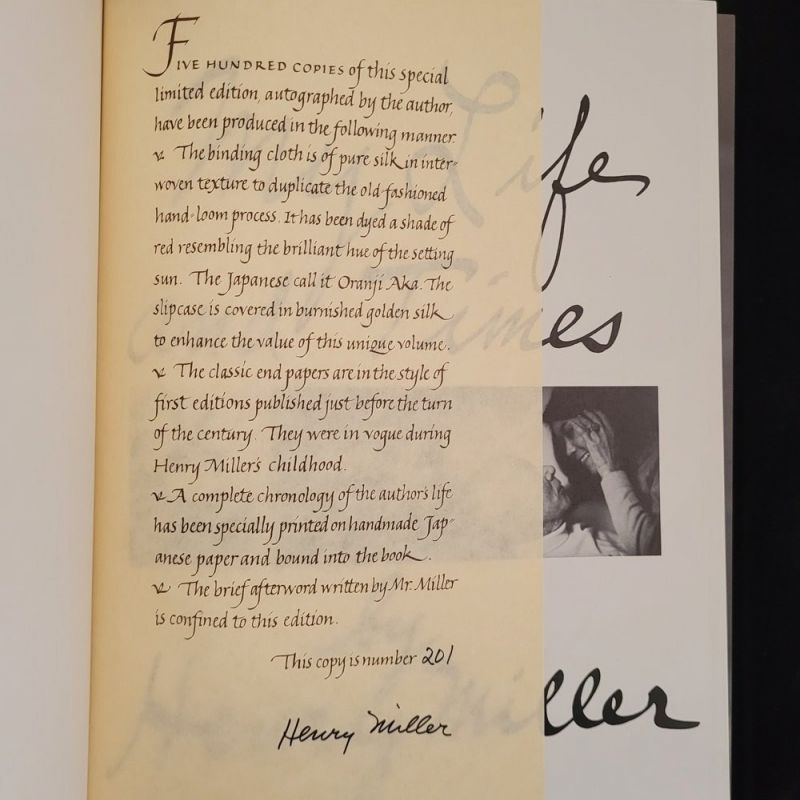 FIVE HUNDRED COPIES of this special
limited edition, autographed by the author,
have been produced in the following manner.
The binding cloth is of pure silk in inter-
woven texture to duplicate the old-fashioned
hand-loom process. It has been dyed a shade of
red resembling the brilliant hue of the setting
sun. The Japanese call it Oranji Aka. The
slipcase is covered in burnished golden silk
to enhance the value of this unique volume.
The classic end papers are in the style of
first editions published just before the turn
of the century. They were in vogue during
Henry Miller's childhood.
A complete chronology of the author's life
has been specially printed on handmade Jap-
anese paper and bound into the book.
The brief afterword written by Mr. Miller
is confined to this edition.
This copy is number 201
Henry Miller
My Life
& Times
by
Henry Miller